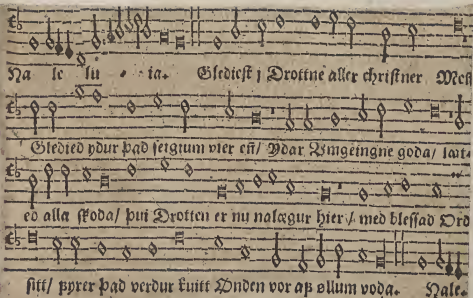 Ha le lu • ia. Glediest j Drottne aller christner Men
Gledied ydur þad seigium vier en/ Ydar Vmgeingne goda/ læt-
ed alla skoda/ þui Drotten er nu nalægur hier / med blessad Ord
sitt/ þyrer þad verdur kuitt Onden vor aß øllum voda. Hale-